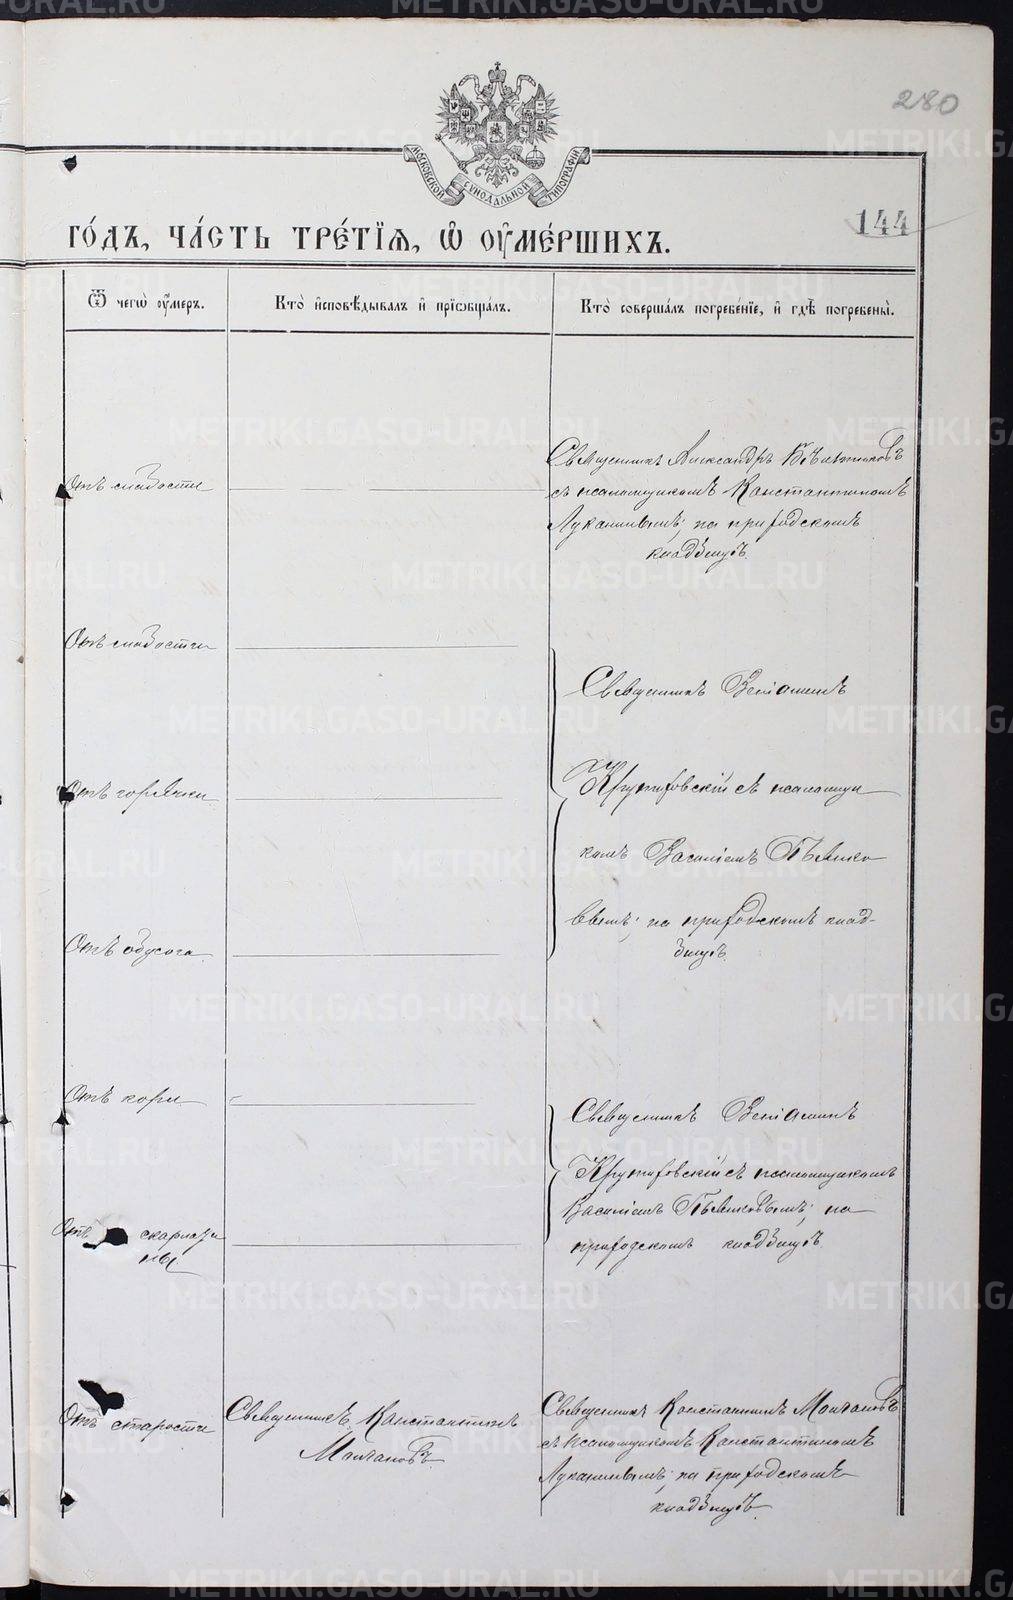 280
МОСКОВСКОЙ СѴНОДАЛЬНОЙ ТИПОГРАФІИ
144
ГО́ДЪ, ЧА́СТЬ ТРЕ́ТІѦ, Ѡ҆ ОУ҆МЕ́РШИХЪ.
Ѿ чегѡ̀ оу҆́меръ.
Кто̀ и҆сповѣ́дывалъ и҆ прїѻбща́лъ.
Кто̀ соверша́лъ погребе́нїе, и҆ гдѣ̀ погребены̀.
Отъ слабости
Священникъ Александръ
съ псаломщикомъ Константиномъ
Луканинымъ; на приходскомъ
кладбищѣ.
Отъ слабости
Священникъ Веніаминъ
Отъ горячки
Крутиховскій съ псаломщи
комъ Василіемъ Пьянко
Отъ обусога
вымъ; на приходскомъ клад-
бищѣ.
Отъ кори
Священникъ Веніаминъ
Крутиховскій съ псаломщикомъ
Василіемъ Пьянковымъ; на
приходскомъ кладбищѣ.
Отъ скарлати
ны
Отъ старости
Священникъ Константинъ
Молчановъ.
Священникъ Константинъ Молчановъ
съ псаломщикомъ Константиномъ
Луканинымъ; на приходскомъ
кладбищѣ.
METRIKI.GASO-URAL.RU